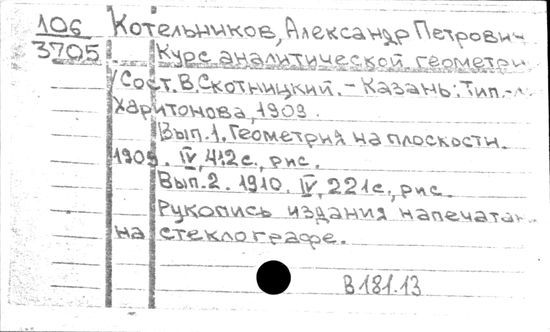 106 Котельников, Александр Петрович
3705 Курс аналитической геометри
/Сост. В. Скотницкий. - Казань: Тип.-л.
Харитонова, 1909.
Вып. 1. Геометрия на плоскости.
1909. IV, 412 с., рис.
Вып. 2. 1910. IV, 221 с., рис.
Рукопись издания напечатан
на стеклографе.
В 181.13